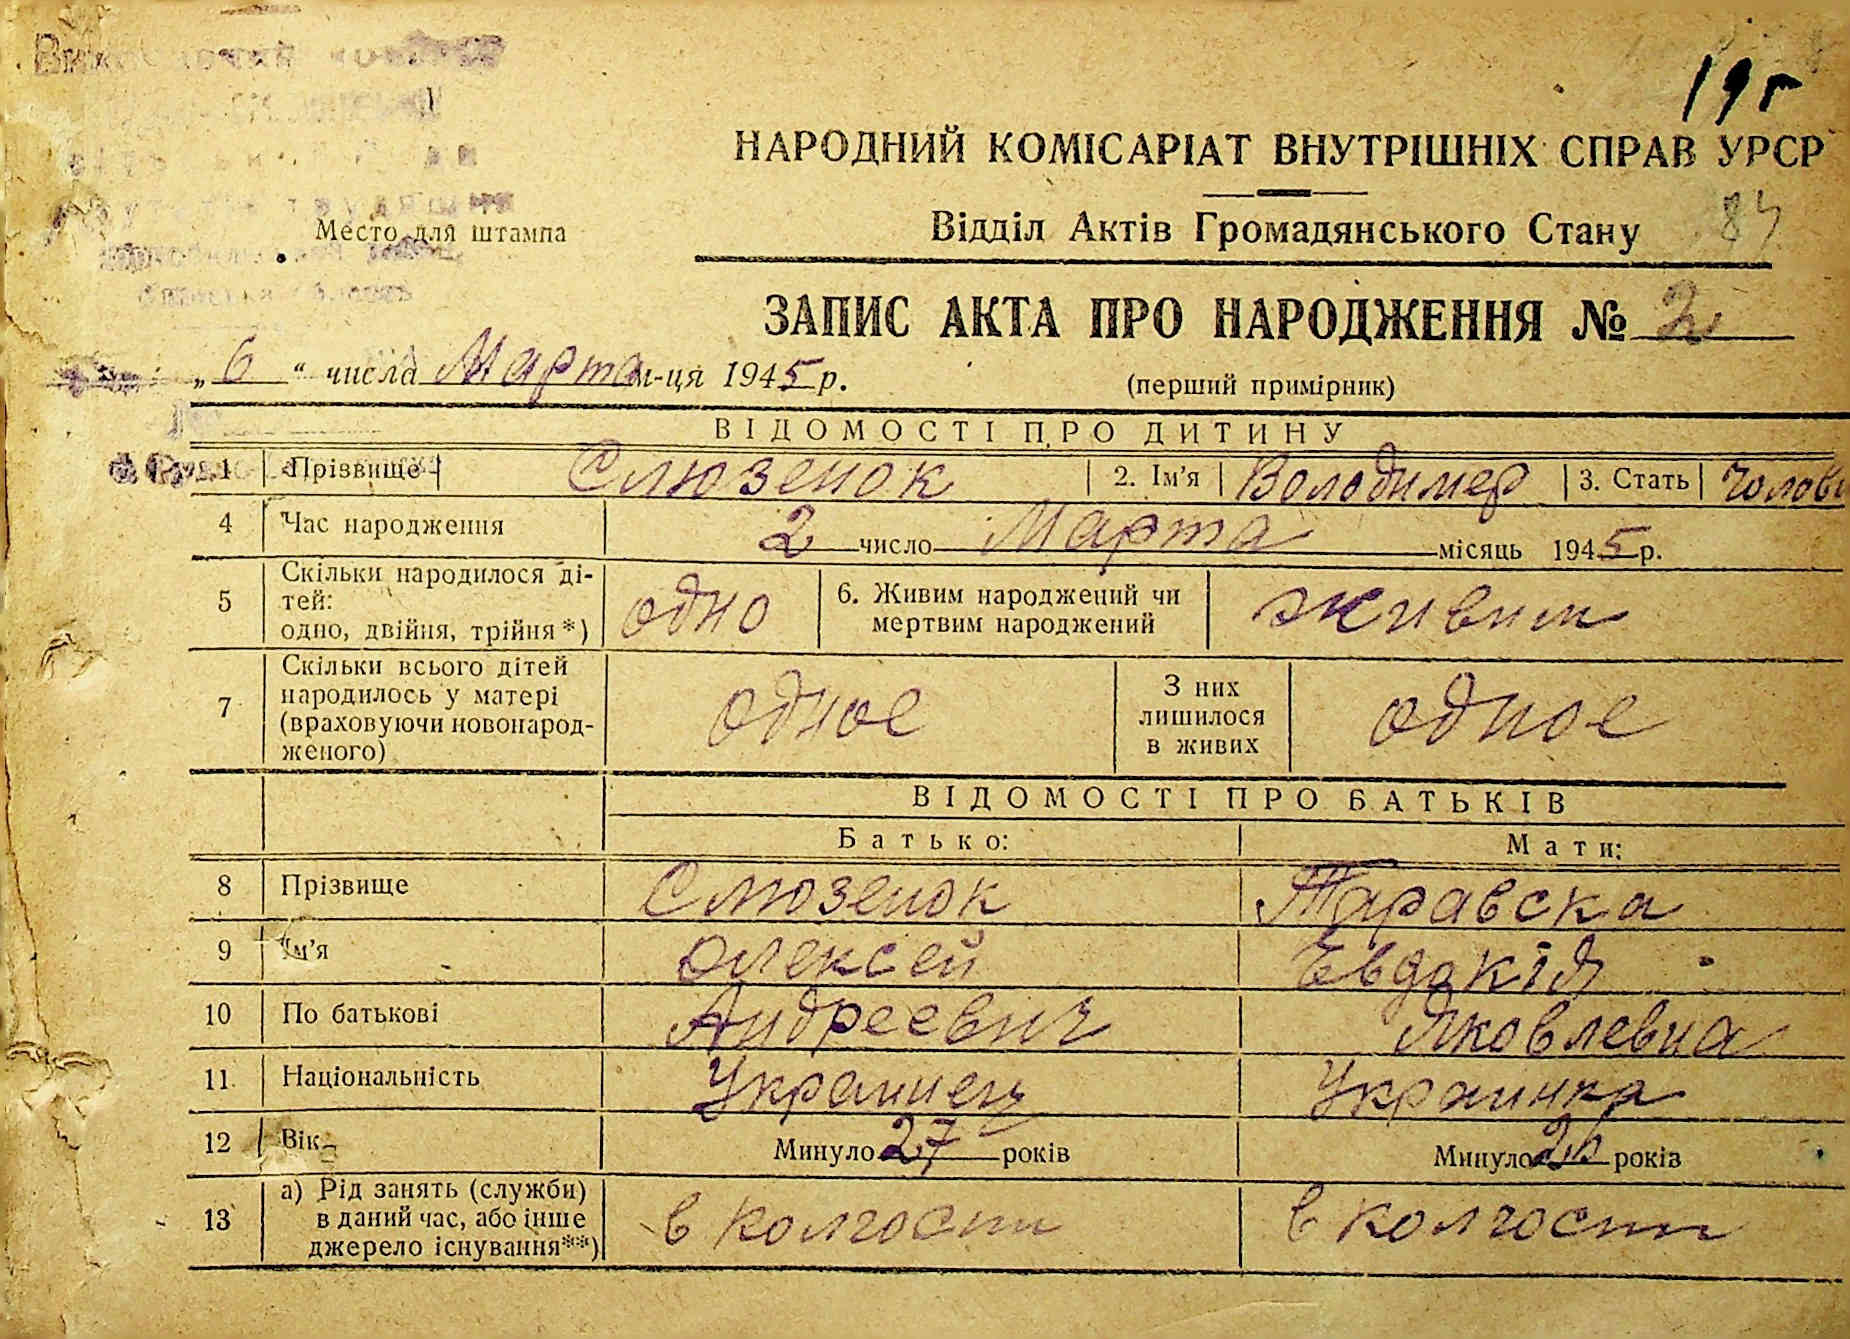 19г
НАРОДНИЙ КОМІСАРІАТ ВНУТРІШНІХ СПРАВ УРСР
Место для штампа
Відділ Актів Громадянського Стану 84
ЗАПИС АКТА ПРО НАРОДЖЕННЯ № 2
„6“ числа Марта м-ця 1945 р.
(перший примірник)
ВІДОМОСТІ ПРО ДИТИНУ
1 Прізвище Слюзенок 2. Ім'я Володимер 3. Стать чолови
4 Час народження 2 число Марта місяць 1945 р.
5 Скільки народилося ді-
тей:
одно, двійня, трійня*) одно
6. Живим народжений чи
мертвим народжений живим
7 Скільки всього дітей
народилось у матері
(враховуючи новонарод-
женого) одное
З них
лишилося
в живих одное
ВІДОМОСТІ ПРО БАТЬКІВ
Батько: Мати:
8 Прізвище Слюзенок Таравска
9 Ім'я Олексей Евдокія
10 По батькові Андреевич Яковлевна
11 Національність Украинец Украинка
12 Вік Минуло 27 років Минуло 26 років
13 а) Рід занять (служби)
в даний час, або інше
джерело існування**) в колгоспи в колгоспи